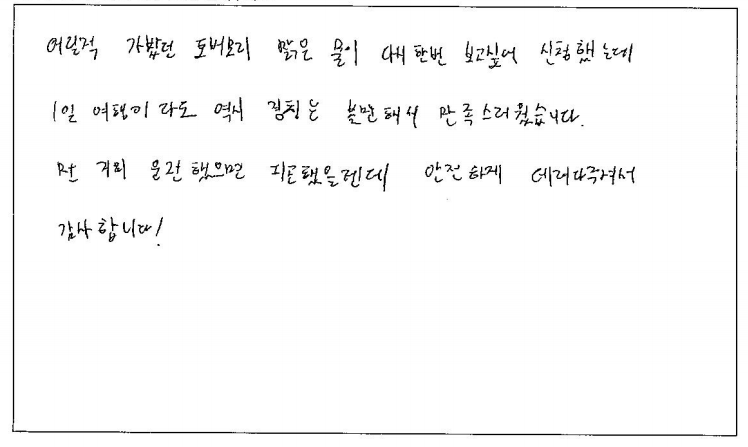 어릴적 가봤던 맑은 물이 다시 한번 보고싶어 신청했는데
1일 역시 경치는 볼만해서 만족스러웠습니다.
거리 운전 했으면 피곤했을텐데 안전하게 데려다주셔서
감사합니다!